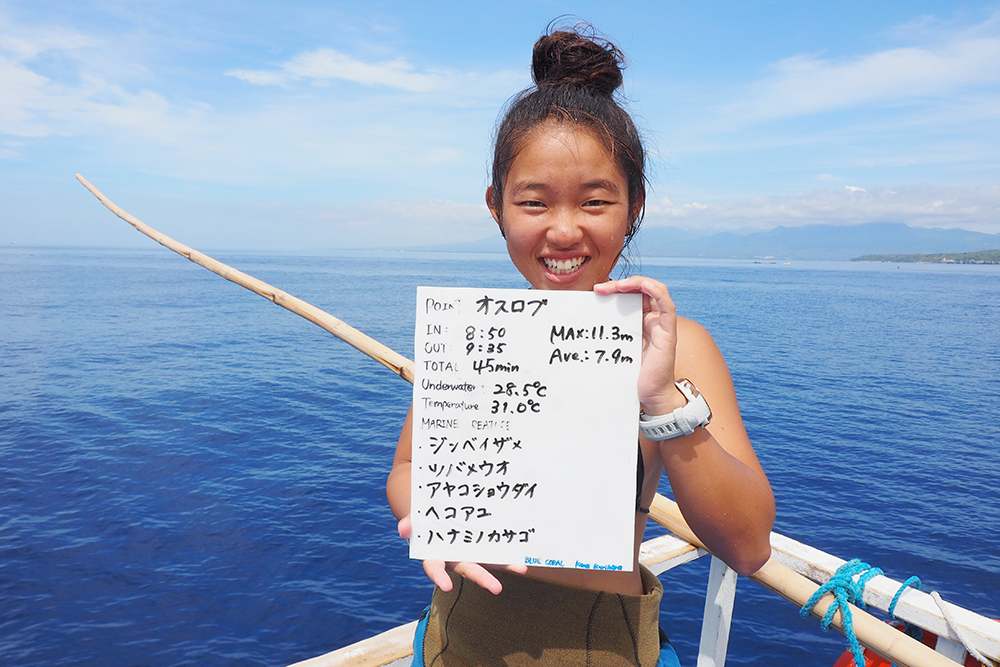 POINT オスロブ
IN: 8:50 MAX:11.3m
OUT: 9:35 Ave.: 7.9m
TOTAL 45min
Underwater: 28.5℃
Temperature 31.0℃
MARINE
・ジンベイザメ
・ツバメウオ
・アヤコショウダイ
・ヘコアユ
・ハナミノカサゴ
BLUE CORAL